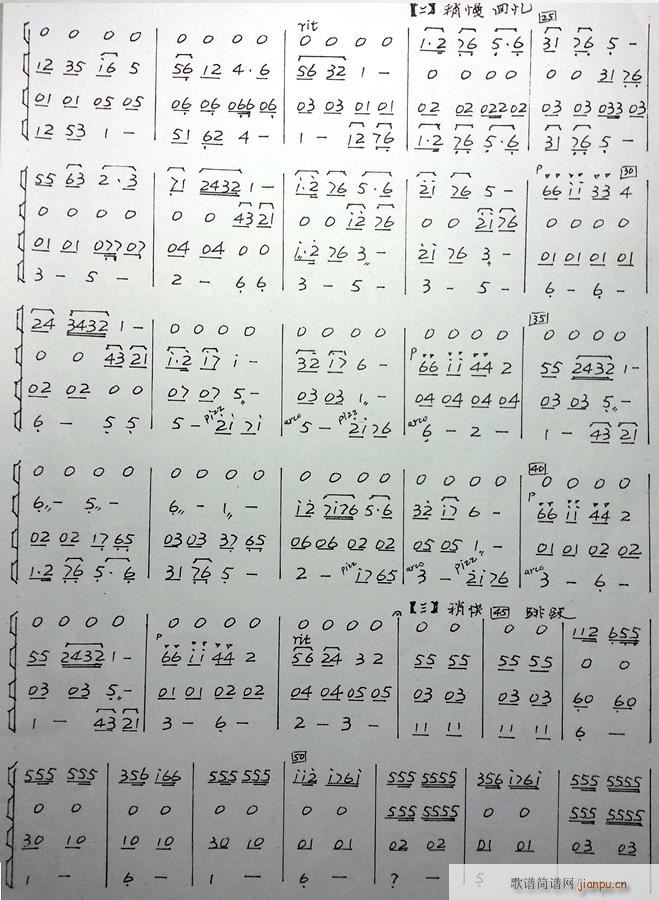 【二】稍慢 回忆
rit 25
0 0 0 0 | 0 0 0 0 | 0 0 0 0 | 1·2 76 5·6 | 31 76 5 –
12 35 i6 5 | 56 12 4·6 | 56 32 1 – | 0 0 0 0 | 0 0 31 76
01 01 05 05 | 06 06 066 06 | 03 03 01 01 | 02 02 022 02 | 03 03 033 03
12 53 1 – | 51 62 4 – | 1 – 12 76 | 1·2 76 5·6 | 31 76 5 –
P 30
55 63 2·3 | 71 2432 1 – | i·2 76 5·6 | 2i 76 5 – | 66 ii 33 4
0 0 0 0 | 0 0 43 21 | 0 0 i2 76 | 0 0 2i 76 | 0 0 0 0
01 01 077 07 | 04 04 0 0 | i·2 76 3 – | 2i 76 3 – | 01 01 01 01
3 – 5 – | 2 – 6 6 | 3 – 5 – | 3 – 5 – | 6 – 6 –
35
24 3432 1 – | 0 0 0 0 | 0 0 0 0 | 0 0 0 0 | 0 0 0 0
0 0 43 21 | i·2 i7 i – | 32 i7 6 – | P 66 ii 44 2 | 55 2432 1 –
02 02 0 0 | 07 07 5 – | 03 03 1 – | 04 04 04 04 | 03 03 5 –
6 – 5 5 | 5 – pizz 2i 7i | arco 5 – pizz 2i 76 | arco 6 – 2 – | 1 – 43 21
40
0 0 0 0 | 0 0 0 0 | 0 0 0 0 | 0 0 0 0 | 0 0 0 0
6 – 5 – | 6 – 1 – | i2 7i76 5·6 | 32 i7 6 – | P 66 ii 44 2
02 02 17 65 | 03 03 37 65 | 06 06 02 02 | 05 05 1 – | 01 01 02 02
1·2 76 5·6 | 31 76 5 – | 2 – pizz i7 65 | arco 3 – pizz 2i 76 | arco 3 – 6 –
【三】稍快 45 跳跃
0 0 0 0 | 0 0 0 0 | 0 0 0 0 | 0 0 | 0 0 | 112 655
55 2432 1 – | P 66 ii 44 2 | rit 56 24 3 2 | 55 55 | 55 55 | 0 0
03 03 5 – | 01 01 02 02 | 04 04 05 05 | 03 03 | 03 03 | 60 60
1 – 43 21 | 3 – 6 – | 2 – 3 – | 11 11 | 11 11 | 6 –
50
555 555 | 356 i66 | 555 555 | ii2 i76i | 555 5555 | 356 i76i | 555 5555
0 0 | 0 0 | 0 0 | 0 0 | 555 5555 | 0 0 | 555 5555
30 10 | 10 10 | 30 10 | 01 01 | 02 02 | 01 01 | 03 03
1 – | 6 – | 1 – | 6 – | 7 – | 5
歌谱简谱网 jianpu.cn